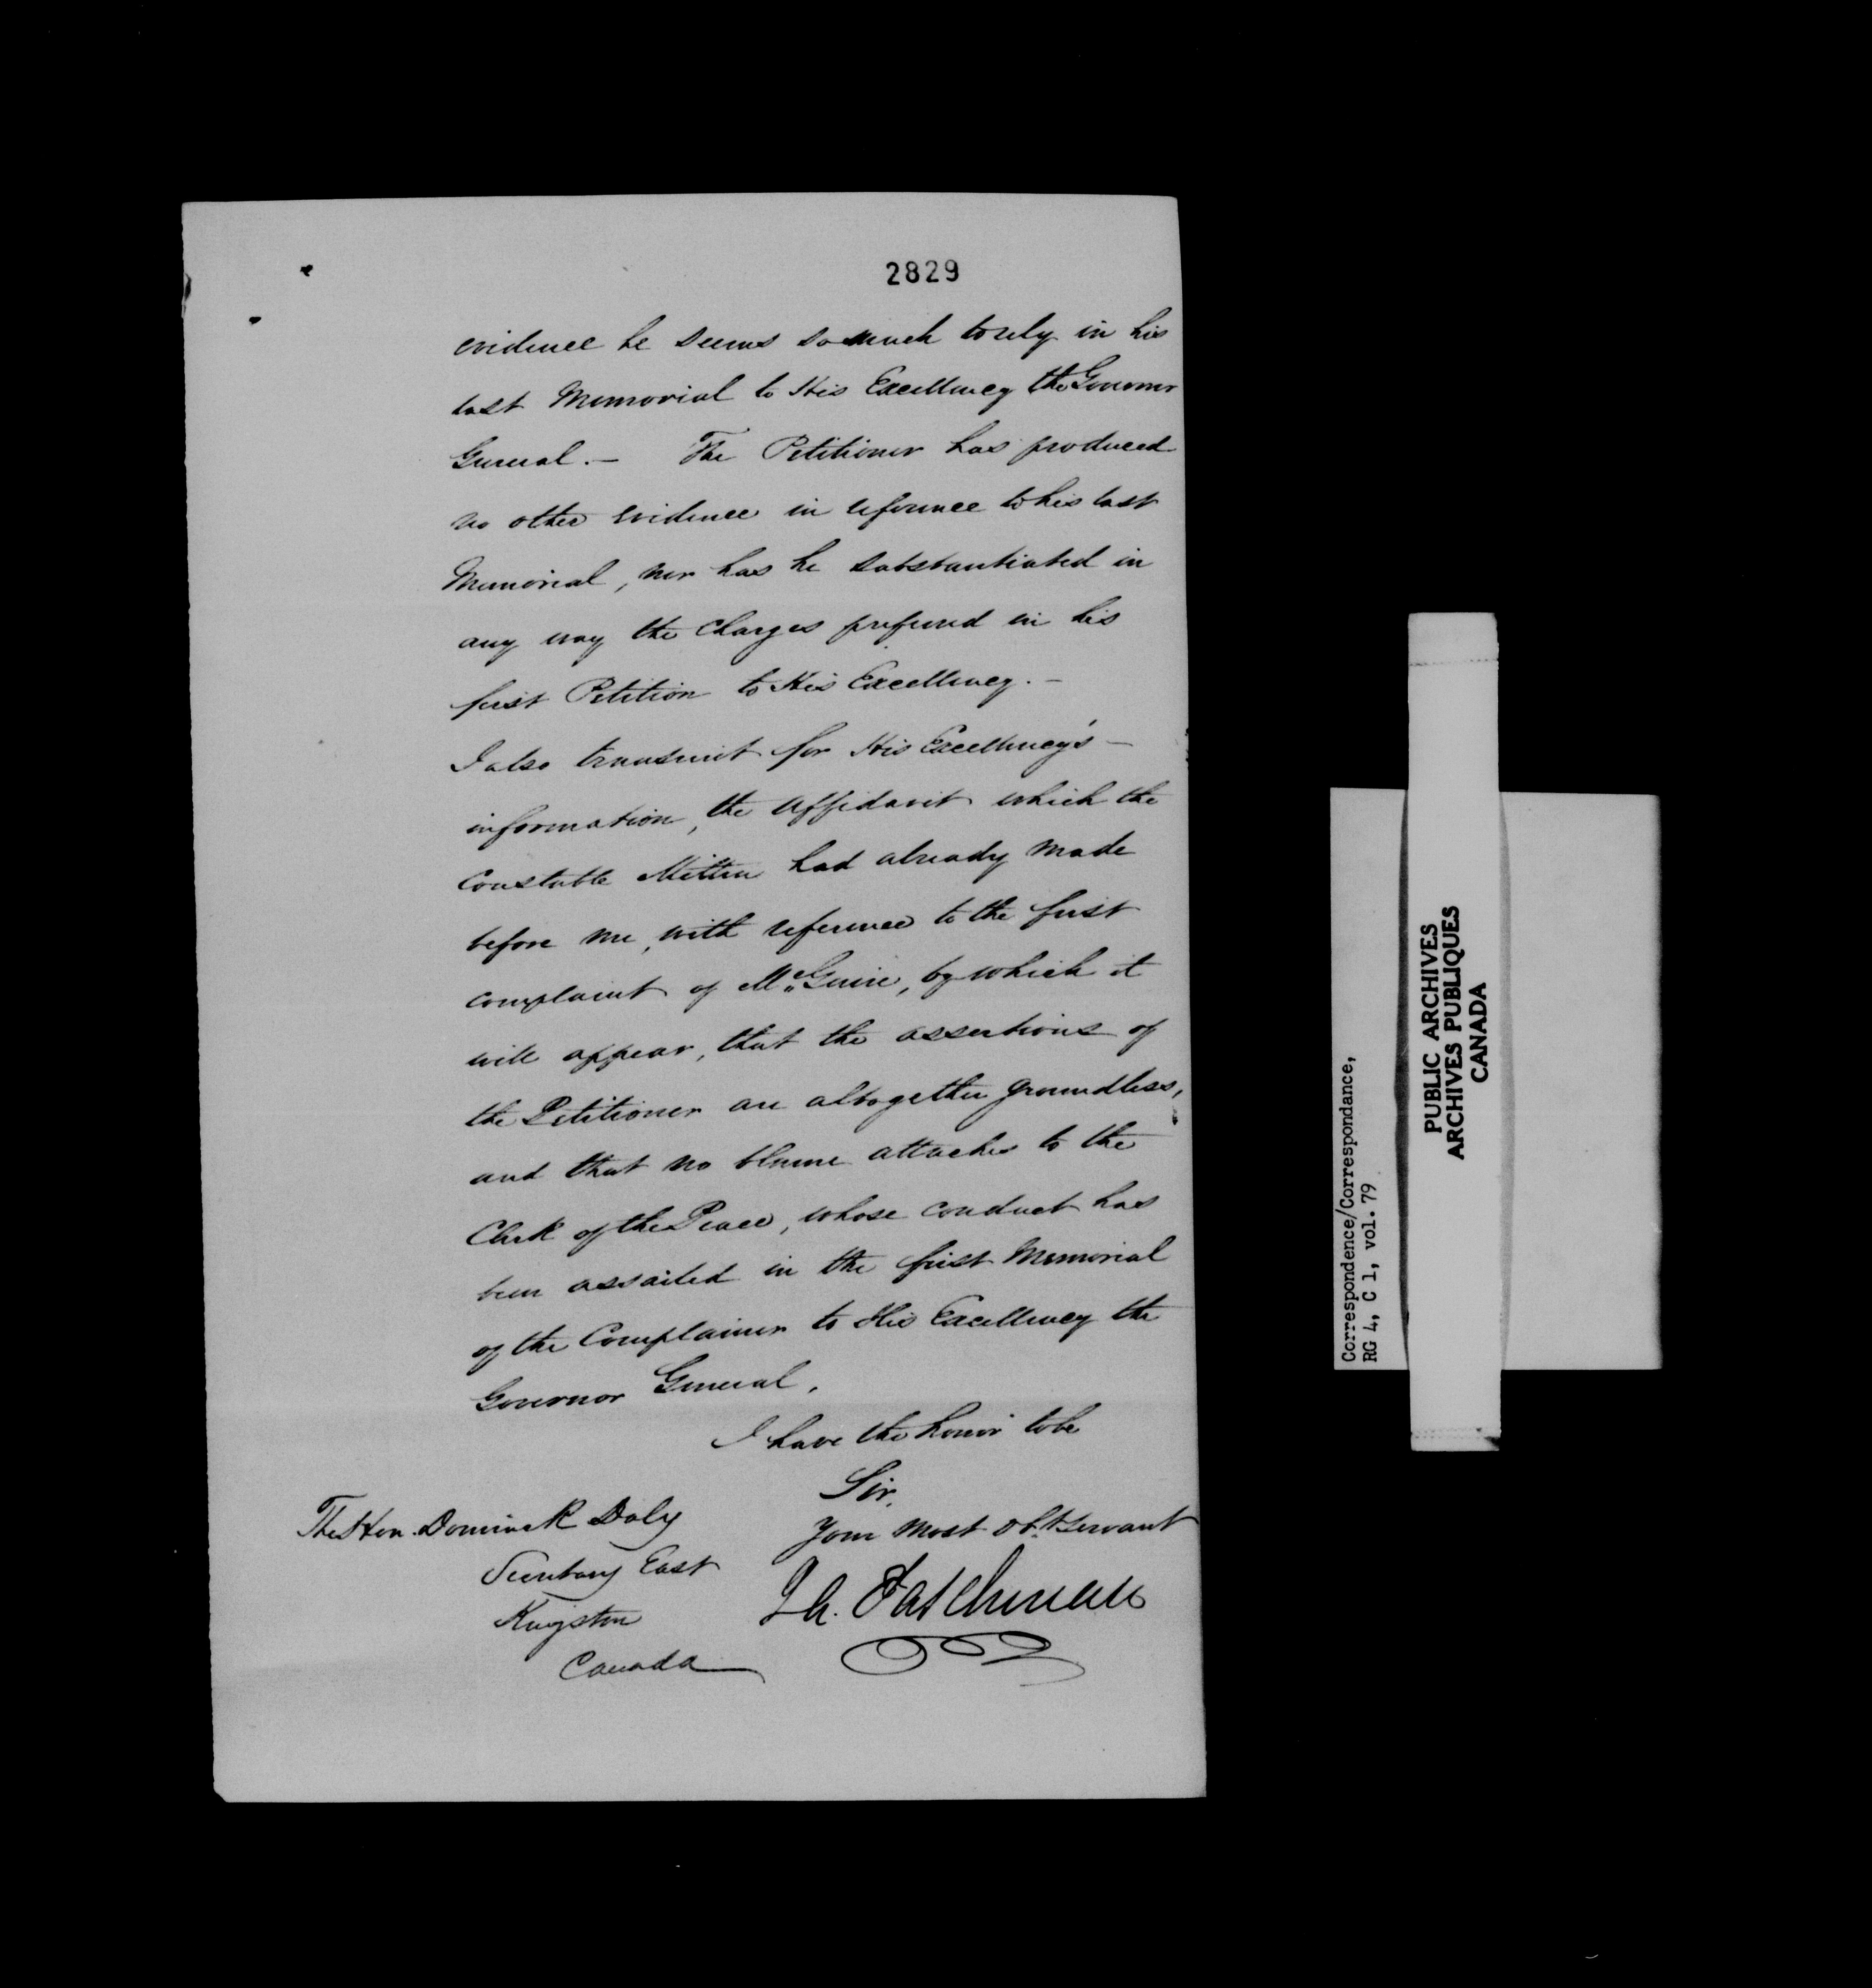 2829
evidence he seems so much to rely in his
last Memorial to His Excellency the Governor
General. — The Petitioner has produced
no other evidence in reference to his last
Memorial, nor has he substantiated in
any way the charges prefered in his
first Petition to His Excellency. —
I also transmit for His Excellency's —
information, the affidavit which the
Constable had already made
before me, with reference to the first
complaint of McGuire, by which it
will appear, that the assertions of
the Petitioner are altogether groundless,
and that no blame attaches to the
Clerk of the Peace, whose conduct has
been assailed in the first Memorial
of the Complainer to His Excellency the
Governor General.
I have the honor to be
Sir,
Your most obt servant
The Hon. Dominick Daly
Secretary East
Kingston
Canada
Correspondence/Correspondance,
RG 4, C 1, vol. 79
PUBLIC ARCHIVES
ARCHIVES PUBLIQUES
CANADA